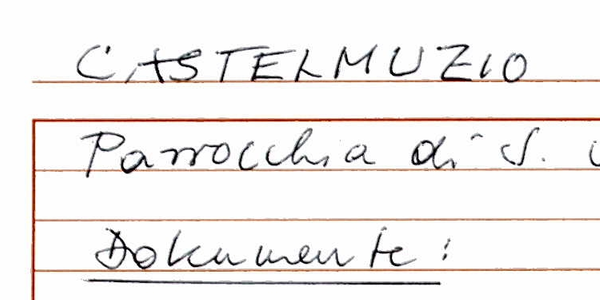 CASTELMUZIO
Parrocchia di S.
Dokumente: